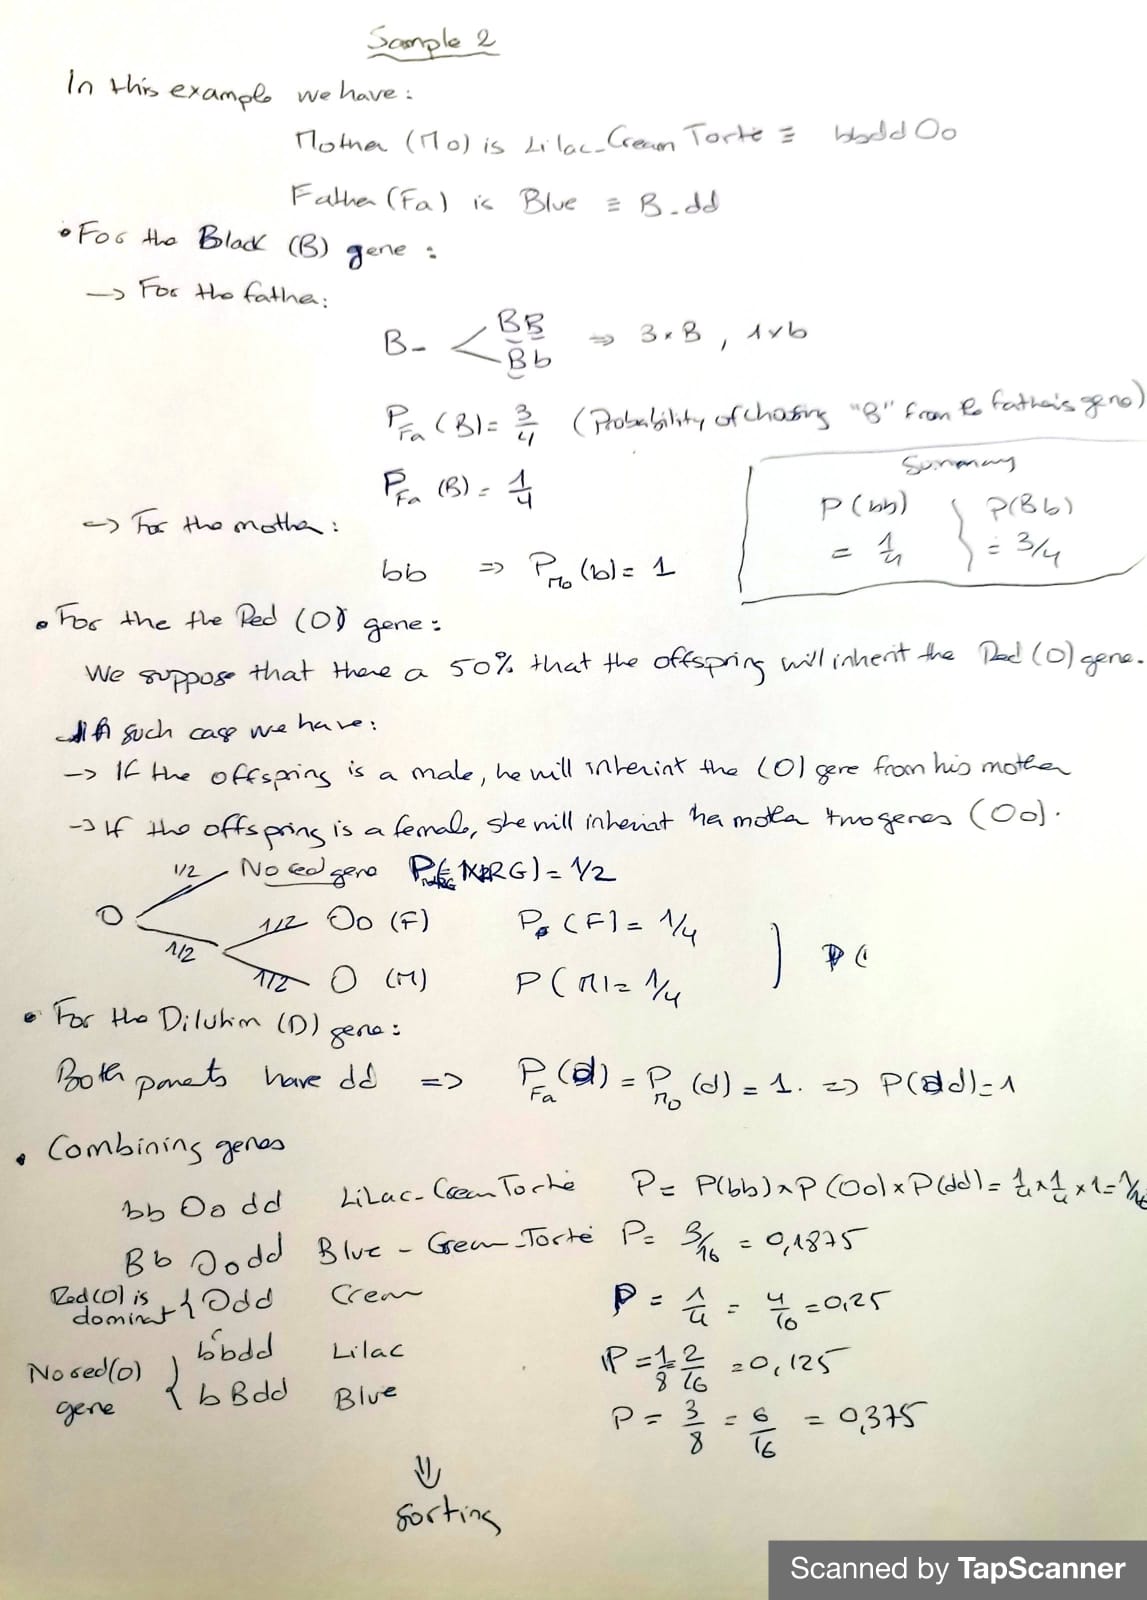 Sample 2
In this example we have:
Mother (Mo) is Lilac-Cream Tortie ≡ bbdd Oo
Father (Fa) is Blue ≡ B-dd
• For the Black (B) gene :
→ For the father:
B- < BB
Bb ⇒ 3×B , 1×b
P Fa (B) = 3/4 (Probability of chosing "B" from the father's gene)
P Fa (B) = 1/4
Summary
P(bb) = 1/4 } P(Bb) = 3/4
→ For the mother :
bb ⇒ P Mo (b) = 1
• For the the Red (O) gene :
We suppose that there a 50% that the offspring will inherit the Red (O) gene.
such case we have:
→ If the offspring is a male, he will inherint the (O) gene from his mother
→ If the offspring is a female, she will inheriat her mother two genes (Oo).
1/2 No red gene P( NRG) = 1/2
O 1/2 1/2 Oo (F) P (F) = 1/4
1/2 O (M) P(M) = 1/4 } P(
• For the Dilution (D) gene :
Both parents have dd => P Fa (d) = P Mo (d) = 1. => P(dd) = 1
• Combining genes
bb Oo dd Lilac-Cream Tortie P = P(bb)×P(Oo)×P(dd) = 1/4×1/4×1 = 1/16
Bb Oo dd Blue-Cream-Tortie P = 3/16 = 0,1875
Red (O) is dominat { Odd Cream P = 1/4 = 4/16 = 0,25
No red (O) gene } bbdd Lilac P = 1/8 = 2/16 = 0,125
{ bBdd Blue P = 3/8 = 6/16 = 0,375
⇓
Sorting
Scanned by TapScanner